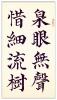 泉眼無聲
惜細流樹